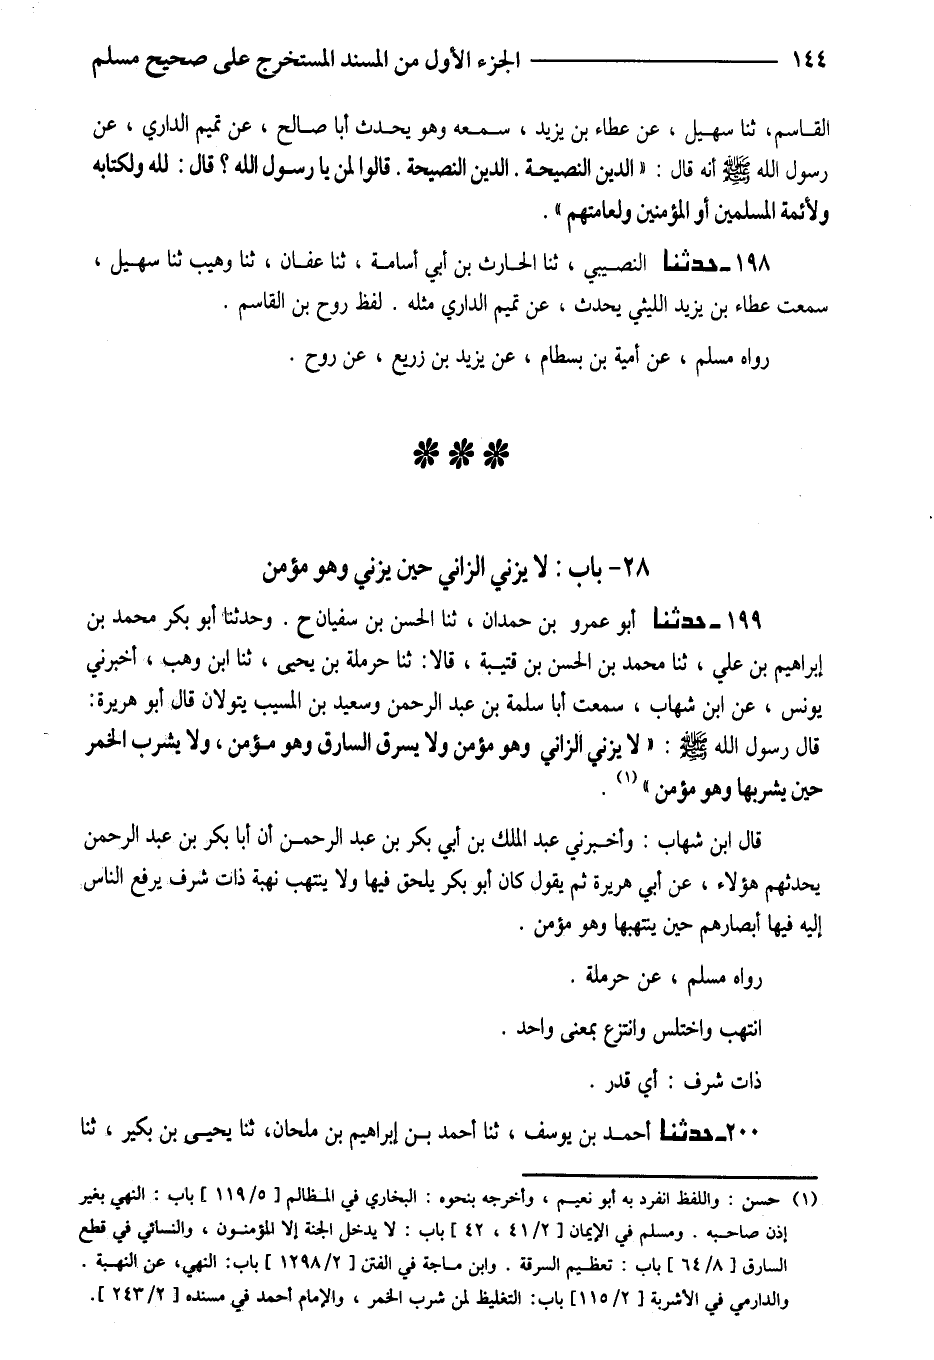 ١٤٤ ——— الجزء الأول من المسند المستخرج على صحيح مسلم
القاسم، ثنا سهيل ، عن عطاء بن يزيد ، سمعه وهو يحدث أبا صالح ، عن تميم الداري ، عن
رسول الله ﷺ أنه قال : « الدين النصيحة . الدين النصيحة . قالوا لمن يا رسول الله ؟ قال : لله ولكتابه
ولأئمة المسلمين أو المؤمنين ولعامتهم » .
١٩٨ـ حدثنا النصيبي ، ثنا الحارث بن أبي أسامة ، ثنا عفان ، ثنا وهيب ثنا سهيل ،
سمعت عطاء بن يزيد الليثي يحدث ، عن تميم الداري مثله . لفظ روح بن القاسم .
رواه مسلم ، عن أمية بن بسطام ، عن يزيد بن زريع ، عن روح .
٢٨- باب : لا يزني الزاني حين يزني وهو مؤمن
١٩٩ـ حدثنا أبو عمرو بن حمدان ، ثنا الحسن بن سفيان ح . وحدثنا أبو بكر محمد بن
إبراهيم بن علي ، ثنا محمد بن الحسن بن قتيبة ، قالا: ثنا حرملة بن يحيى ، ثنا ابن وهب ، أخبرني
يونس ، عن ابن شهاب ، سمعت أبا سلمة بن عبد الرحمن وسعيد بن المسيب يتولان قال أبو هريرة:
قال رسول الله ﷺ : « لا يزني الزاني وهو مؤمن ولا يسرق السارق وهو مؤمن ، ولا يشرب الخمر
حين يشربها وهو مؤمن » (١) .
قال ابن شهاب : وأخبرني عبد الملك بن أبي بكر بن عبد الرحمن أن أبا بكر بن عبد الرحمن
يحدثهم هؤلاء ، عن أبي هريرة ثم يقول كان أبو بكر يلحق فيها ولا ينتهب نهبة ذات شرف يرفع الناس
إليه فيها أبصارهم حين ينتهبها وهو مؤمن .
رواه مسلم ، عن حرملة .
انتهب واختلس وانتزع بمعنى واحد .
ذات شرف : أي قدر .
٢٠٠ـ حدثنا أحمد بن يوسف ، ثنا أحمد بن إبراهيم بن ملحان، ثنا يحيى بن بكير ، ثنا
(١) حسن : واللفظ انفرد به أبو نعيم ، وأخرجه بنحوه : البخاري في المظالم [ ١١٩/٥ ] باب : النهي بغير
إذن صاحبه . ومسلم في الإيمان [ ٤١/٢ ، ٤٢ ] باب : لا يدخل الجنة إلا المؤمنون ، والنسائي في قطع
السارق [ ٦٤/٨ ] باب : تعظيم السرقة . وابن ماجة في الفتن [ ١٢٩٨/٢ ] باب: النهي، عن النهبة .
والدارمي في الأشربة [ ١١٥/٢] باب: التغليظ لمن شرب الخمر ، والإمام أحمد في مسنده [ ٢٤٣/٢ ].